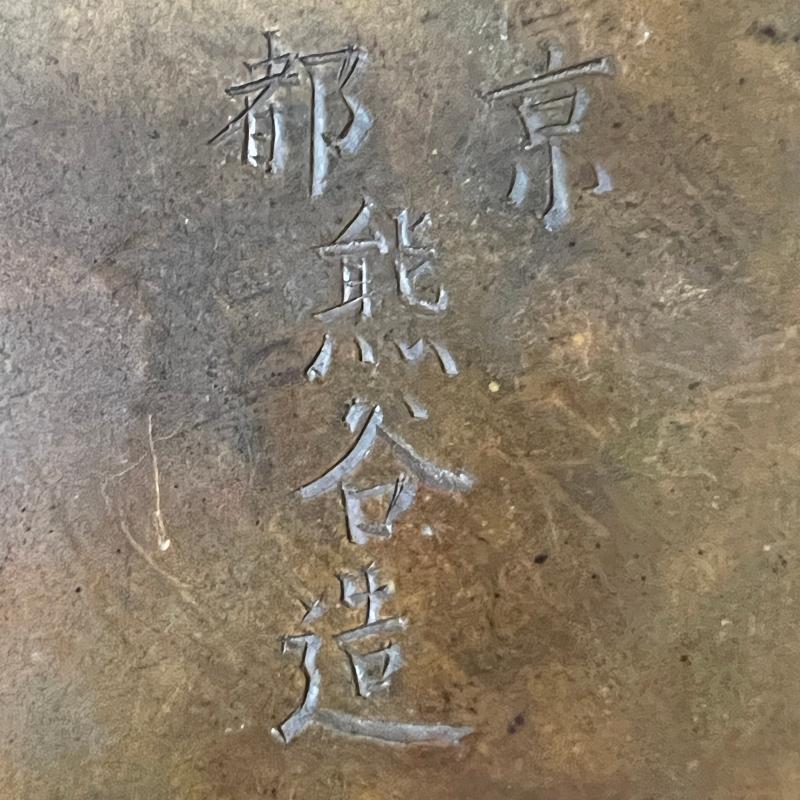 京都
熊谷造